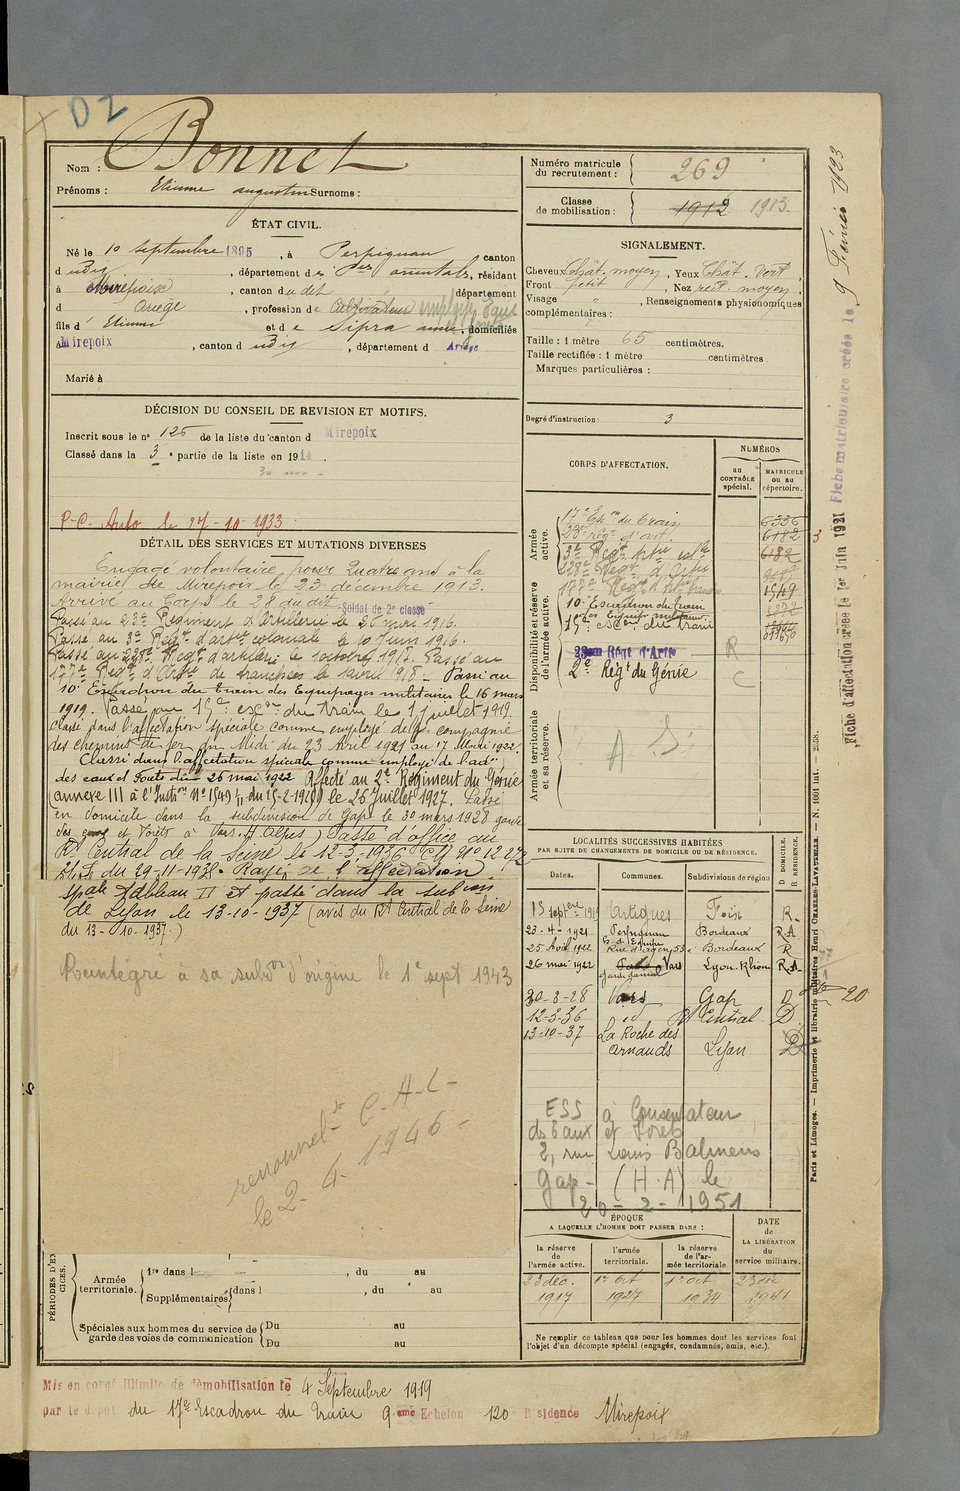 D2
Nom : Bonnet
Prénoms : Etienne augustin Surnoms :
ÉTAT CIVIL.
Né le 10 septembre 1895, à Perpignan, canton
d udy, département des Pes orientales, résidant
à Mirepoix, canton du dit, département
d Ariège, profession de Cultivateur employé Eaux
fils d' Etienne et de Sipra anne, domiciliés
à Mirepoix, canton d udy, département d Ariège
Marié à
DÉCISION DU CONSEIL DE REVISION ET MOTIFS.
Inscrit sous le n° 125 de la liste du canton d Mirepoix
Classé dans la 3e partie de la liste en 1914.
P.C. Auto le 27-10-1933
DÉTAIL DES SERVICES ET MUTATIONS DIVERSES
Engagé volontaire pour Quatre ans à la
mairie de Mirepoix le 23 décembre 1913.
Arrivé au Corps le 28 du dit. Soldat de 2e classe
Passé au 23e Régiment d'Artillerie le 26 mai 1916.
Passé au 3e Régt d'arte coloniale le 10 Juin 1916.
Passé au 228e Régt d'artierie le 1 octobre 1917. Passé au
177e Régt d'Arte de tranchées le 1 avril 1918. Passé au
10e Escadron du Train des Equipages militaires le 16 mars
1919. Passé au 15e escon du train le 1 juillet 1919.
Classé dans l'affectation spéciale comme employé de la compagnie
des chemins de fer du Midi du 23 Avril 1921 au 17 Mars 1922.
Classé dans l'affectation spéciale comme employé de l'adon
des eaux et Forets du 26 mai 1922 Affecté au 2e Régiment du Génie
(annexe III à l'Instron N° 1549 1/11 du 15-2-1926) le 25 Juillet 1927. Passé
en domicile dans la subdivision de Gap le 30 mars 1928 garde
des eaux et Forêts à Vars. H. Alpes) Passé d'office au
Rt Central de la Seine le 12-3-1936 CM N° 1227
du 29-11-193 Rayé de l'affectation
spale Tableau II et passé dans la subon
de Lyon le 13-10-1937 (avis du Rt Central de la Seine
du 13-10-1937.)
Réintégré à sa subon d'origine le 1e sept 1943
C.H.L
le 2. 4. 1946
PÉRIODES D'EXERCICES.
Armée territoriale.
1re dans l , du au
Supplémentaires dans l , du au
Spéciales aux hommes du service de garde des voies de communication
Du au
Du au
Mis en congé illimité de démobilisation le 4 Septembre 1919
par le dépôt du 17e Escadron du Train 9eme Echelon 120 Résidence Mirepoix
Numéro matricule du recrutement : 269
Classe de mobilisation : 1912 1913.
SIGNALEMENT.
Cheveux Chât. moyen, Yeux Chât. Vert,
Front petit, Nez rect. moyen,
Visage " , Renseignements physionomiques
complémentaires :
Taille : 1 mètre 65 centimètres.
Taille rectifiée : 1 mètre centimètres
Marques particulières :
Degré d'instruction : 3
CORPS D'AFFECTATION.
NUMÉROS
au CONTRÔLE spécial.
MATRICULE ou au répertoire.
Armée active.
17e Escon du Train 6336
23e rég. d'art. 6182
3e Régt Artie colle 6182
228e Régt d'Artie
Disponibilité et réserve de l'armée active.
177e Régt d'Art. tranchées 1519
10e Escadron du Train
des Equipes militaires
15e escon du train
23em Régt d'Arte R
2e Régt du Génie C
Armée territoriale et sa réserve.
A. S.
LOCALITÉS SUCCESSIVES HABITÉES
PAR SUITE DE CHANGEMENTS DE DOMICILE OU DE RÉSIDENCE.
Dates. Communes. Subdivisions de région D DOMICILE. R RÉSIDENCE.
Artigues Foix R.
23-4-1921 Perpignan Bordeaux R.A
25 Avril 1922 Bordeaux R
26 mai 1922 Vars Lyon-Rhône R.A
garde domanial
30-3-28 Vars Gap D
12-3-36 id Rt Central D
13-10-37 La Roche des Lyon D
Arnauds
20
ESS à Conservateur
ds Eaux et Forets
2, rue Louis
Gap - (H.A) le
20-2-1951
ÉPOQUE
A LAQUELLE L'HOMME DOIT PASSER DANS :
DATE de LA LIBÉRATION du service militaire.
la réserve de l'armée active. l'armée territoriale. la réserve de l'armée territoriale
23 déc. 1er oct 1er oct 23 déc
1917 1927 1934 1941
Ne remplir ce tableau que pour les hommes dont les services font
l'objet d'un décompte spécial (engagés, condamnés, omis, etc.).
Paris et Limoges. — Imprimerie et librairie militaires Henri CHARLES-LAVAUZELLE. — N. 1091 int. — 2558.
Fiche d'affectation créée le 1er Juin 1921 Fiche matriculaire créée le 9 Février 1923